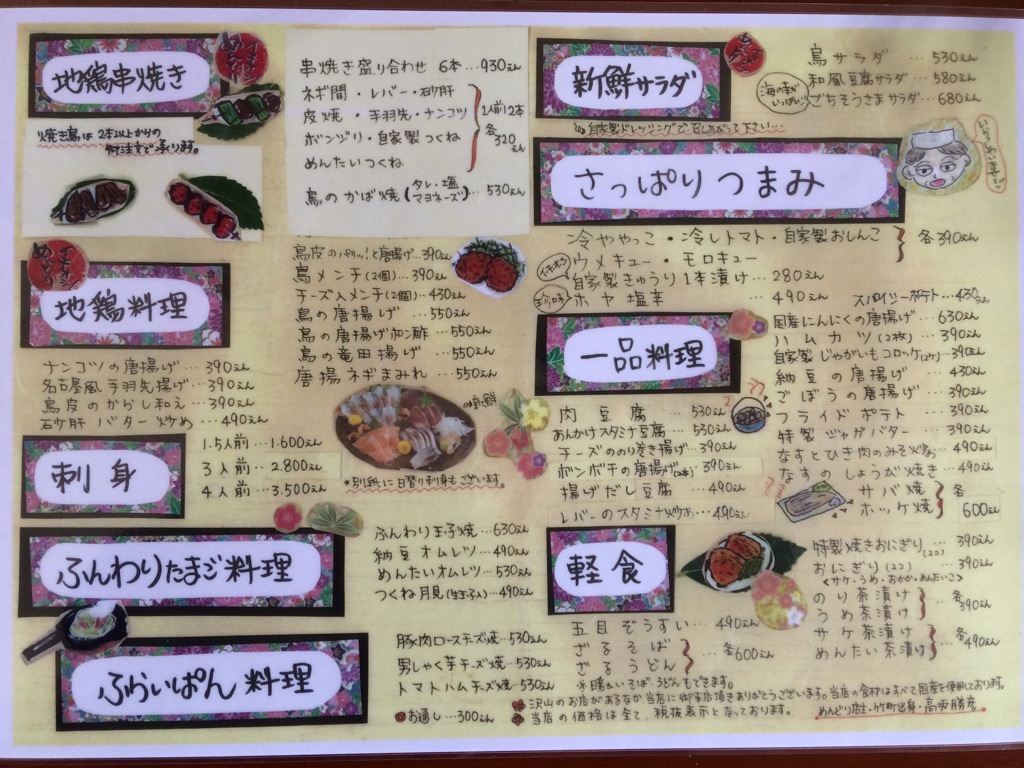 地鶏串焼き
イチオシ
めんどり
焼き鳥は2本以上からの
御注文で承ります。
串焼き盛り合わせ 6本…930えん
ネギ間・レバー・砂肝
皮焼・手羽先・ナンコツ
ボンジリ・自家製つくね
めんたいつくね
1人前2本
各320えん
鳥のかば焼(タレ・塩 マヨネーズ)…530えん
イチオシ
めんどり
地鶏料理
ナンコツの唐揚げ…390えん
名古屋風手羽先揚げ…390えん
鳥皮のからし和え…390えん
砂肝バター炒め…490えん
鳥皮のパリッ!と唐揚げ…390えん
鳥メンチ(2個)…390えん
チーズ入メンチ(2個)…430えん
鳥の唐揚げ…550えん
鳥の唐揚げポン酢…550えん
鳥の竜田揚げ…550えん
唐揚ネギまみれ…550えん
刺身
1.5人前…1.600えん
3人前…2.800えん
4人前…3.500えん
新鮮
*別紙に日替り刺身もございます。
ふんわりたまご料理
ふんわり玉子焼…630えん
納豆オムレツ…490えん
めんたいオムレツ…530えん
つくね月見(生玉子入)…490えん
ふらいぱん料理
豚肉ロースチーズ焼…530えん
男しゃく芋チーズ焼…530えん
トマトハムチーズ焼…530えん
お通し…300えん
新鮮サラダ
海の幸がいっぱい
鳥サラダ…530えん
和風豆腐サラダ…580えん
ごちそうさまサラダ…680えん
自家製ドレッシングで召し上がって下さい…
さっぱりつまみ
冷ややっこ・冷しトマト・自家製おしんこ
ウメキュー・モロキュー
各390えん
イチオシ
自家製きゅうり1本漬け…280えん
珍味
ホヤ塩辛…490えん
一品料理
肉豆腐…530えん
あんかけスタミナ豆腐…530えん
チーズののり巻き揚げ…390えん
ボンボチの唐揚げ(2本)390えん
揚げだし豆腐…490えん
レバーのスタミナ炒め…490えん
スパイシーポテト…430えん
国産にんにくの唐揚げ…630えん
ハムカツ(2枚)…390えん
自家製じゃがいもコロッケ(2ケ)…390えん
納豆の唐揚げ…430えん
ごぼうの唐揚げ…390えん
フライドポテト…390えん
特製ジャガバター…390えん
なすとひき肉のみそ炒め…490えん
なすのしょうが焼き…490えん
サバ焼
ホッケ焼
各600えん
軽食
五目ぞうすい…490えん
ざるそば
ざるうどん
各600えん
*暖かいそば、うどんもできます。
特製焼きおにぎり(2コ)…390えん
おにぎり(2コ)…390えん
<サケ・うめ・おかか・めんたいこ>
のり茶漬け
うめ茶漬け
各390えん
サケ茶漬け
めんたい茶漬け
各490えん
沢山のお店があるなか当店に御来店頂きありがとうございます。当店の食材はすべて国産を使用しております。
当店の価格は全て、税抜表示となっております。
めんどり店主・竹町出身・高坂勝彦